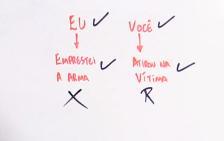 EU ✓ VOCÊ ✓
EMPRESTEI ✓ ATIROU NA ✓
A ARMA VÍTIMA
X R